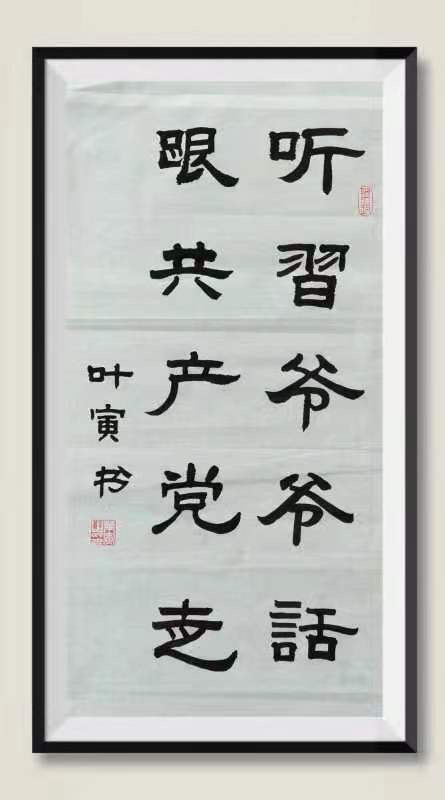 听習爷爷話
眼共产党走
叶寅书